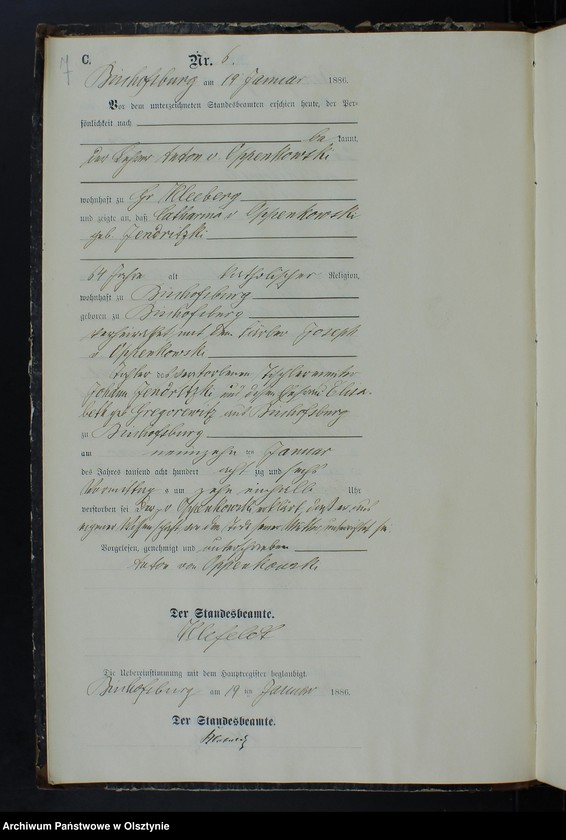 7
C.
Nr. 6.
Bischofsburg am 19 Januar 1886.
Vor dem unterzeichneten Standesbeamten erschien heute, der Per-
sönlichkeit nach
be kannt,
der Anton v. Oppenkowski
wohnhaft zu Gr Kleeberg
und zeigte an, daß Catharina v Oppenkowski
geb. Jendritzki
64 Jahre alt katholischer Religion,
wohnhaft zu Bischofsburg
geboren zu Bischofsburg
verheirathet mit dem Färber Joseph
v Oppenkowski
Tochter des verstorbenen Tischlermeister
Johann Jendritzki und dessen Ehefrau Elisa-
beth geb Gregorewitz aus Bischofsburg
zu Bischofsburg
am neunzehn ten Januar
des Jahres tausend acht hundert acht zig und sechs
Vormittag s um zehn einhalb Uhr
verstorben sei Der v. Oppenkowski erklärt, daß er aus
eigener Wissenschaft von dem Tode seiner Mutter unterrichtet sei
Vorgelesen, genehmigt und unterschrieben
Anton von Oppenkowski
Der Standesbeamte.
Die Uebereinstimmung mit dem Hauptregister beglaubigt
Bischofsburg am 19 ten Januar 1886.
Der Standesbeamte.
Archiwum Państwowe w Olsztynie